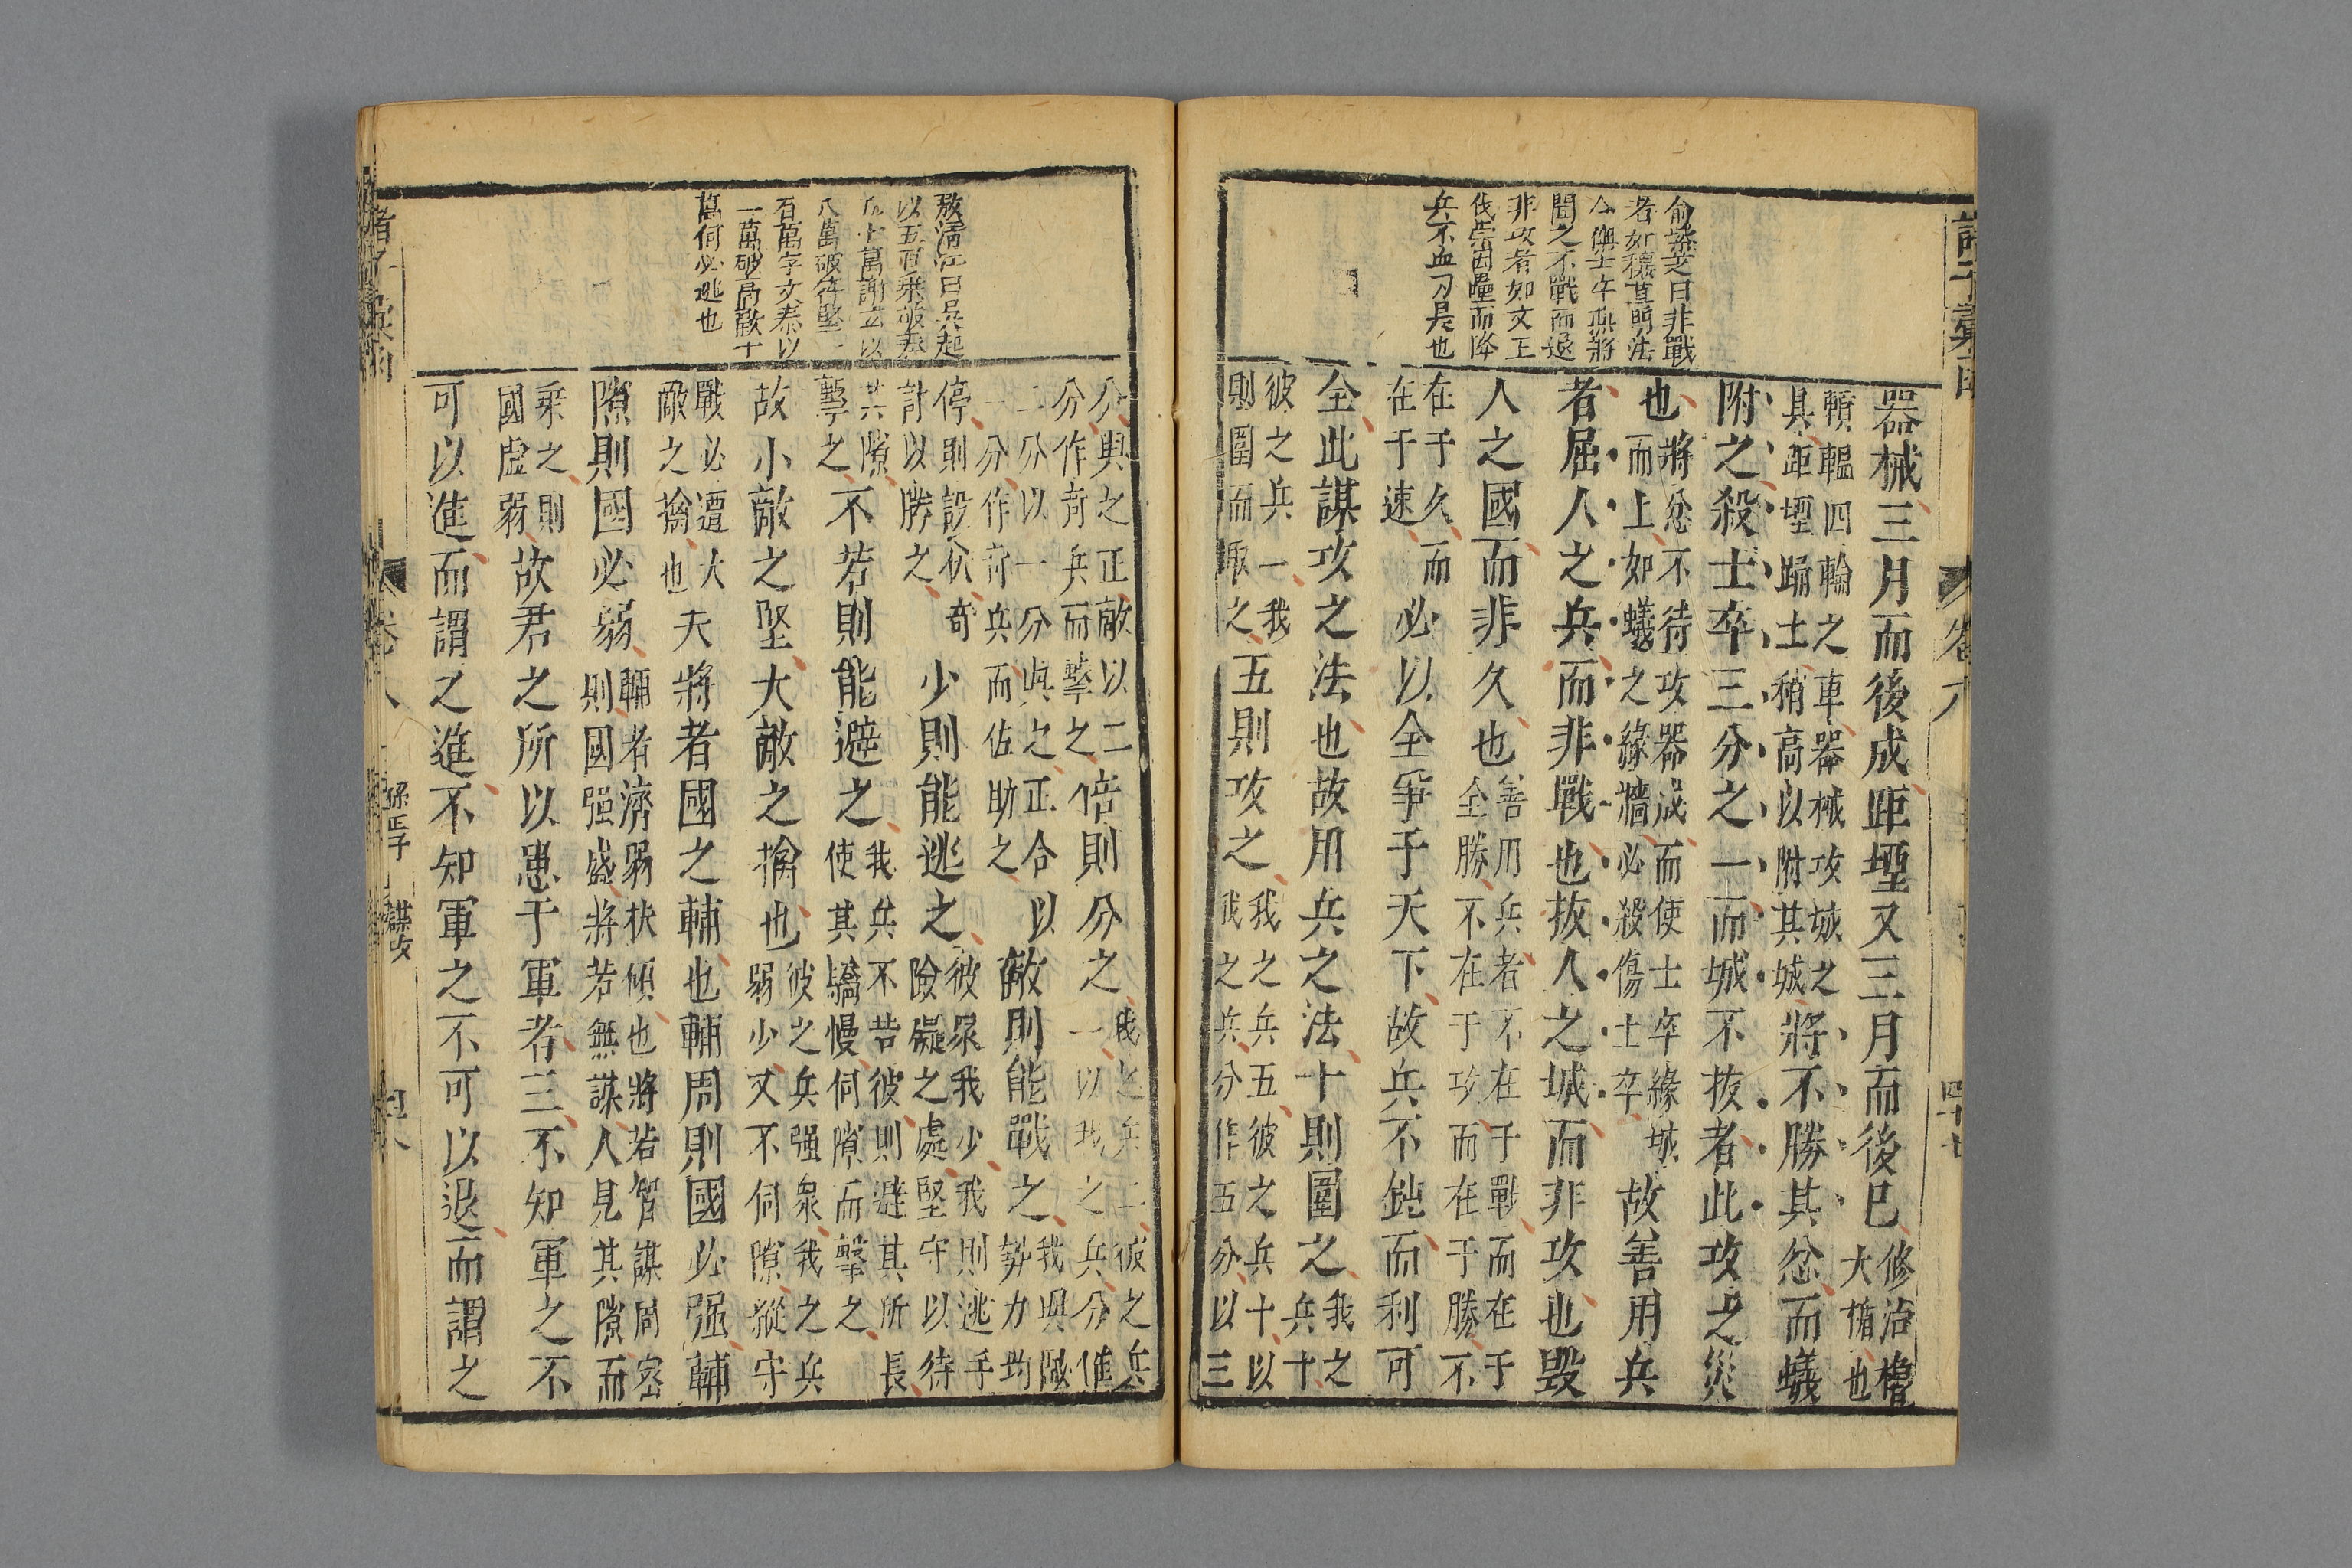 諸子彙函 卷八 四十七
俞諡芝曰非戰
者如穰苴明法
令撫士卒燕將
聞之不戰而退
非攻者如文王
伐崇因壘而降
兵不血刃是也
器械三月而後成距堙又三月而後已
修治櫓
大楯也
轒轀四輪之車器械攻城之
具距堙踊土稍高以附其城
將不勝其忿而蟻
附之殺士卒三分之一而城不拔者此攻之災
也
將忿不待攻器成而使士卒緣城
而上如蟻之緣牆必殺傷士卒
故善用兵
者屈人之兵而非戰也拔人之城而非攻也毀
人之國而非久也
善用兵者不在于戰而在于
全勝不在于攻而在于勝不
在于久而
在于速
必以全爭于天下故兵不鈍而利可
全此謀攻之法也故用兵之法十則圍之
我之
兵十
彼之兵一我
則圍而取之
五則攻之
我之兵五彼之兵十以
我之兵分作五分以三
敖清江曰吳起
以五百乘破秦
五十萬謝玄以
八萬破苻堅一
百萬宇文泰以
一萬破高歡十
萬何必逃也
分與之正敵以二
分作奇兵而擊之
倍則分之
我之兵二彼之兵
一以我之兵分惟
二分以一分與之正合以
一分作奇兵而佐助之
敵則能戰之
我與敵
勢力均
停則設伏奇
計以勝之
少則能逃之
彼衆我少我則逃乎
險礙之處堅守以待
其隙
擊之
不若則能避之
我兵不若彼則避其所長
使其驕慢伺隙而擊之
故小敵之堅大敵之擒也
彼之兵强衆我之兵
弱少又不伺隙縱守
戰必遭大
敵之擒也
夫將者國之輔也輔周則國必强輔
隙則國必弱
輔者濟弱扶傾也將若智謀周密
則國强盛將若無謀人見其隙而
乘之則
國虛弱
故君之所以患于軍者三不知軍之不
可以進而謂之進不知軍之不可以退而謂之
諸子彙函 卷八 孫武子 謀攻 四十八